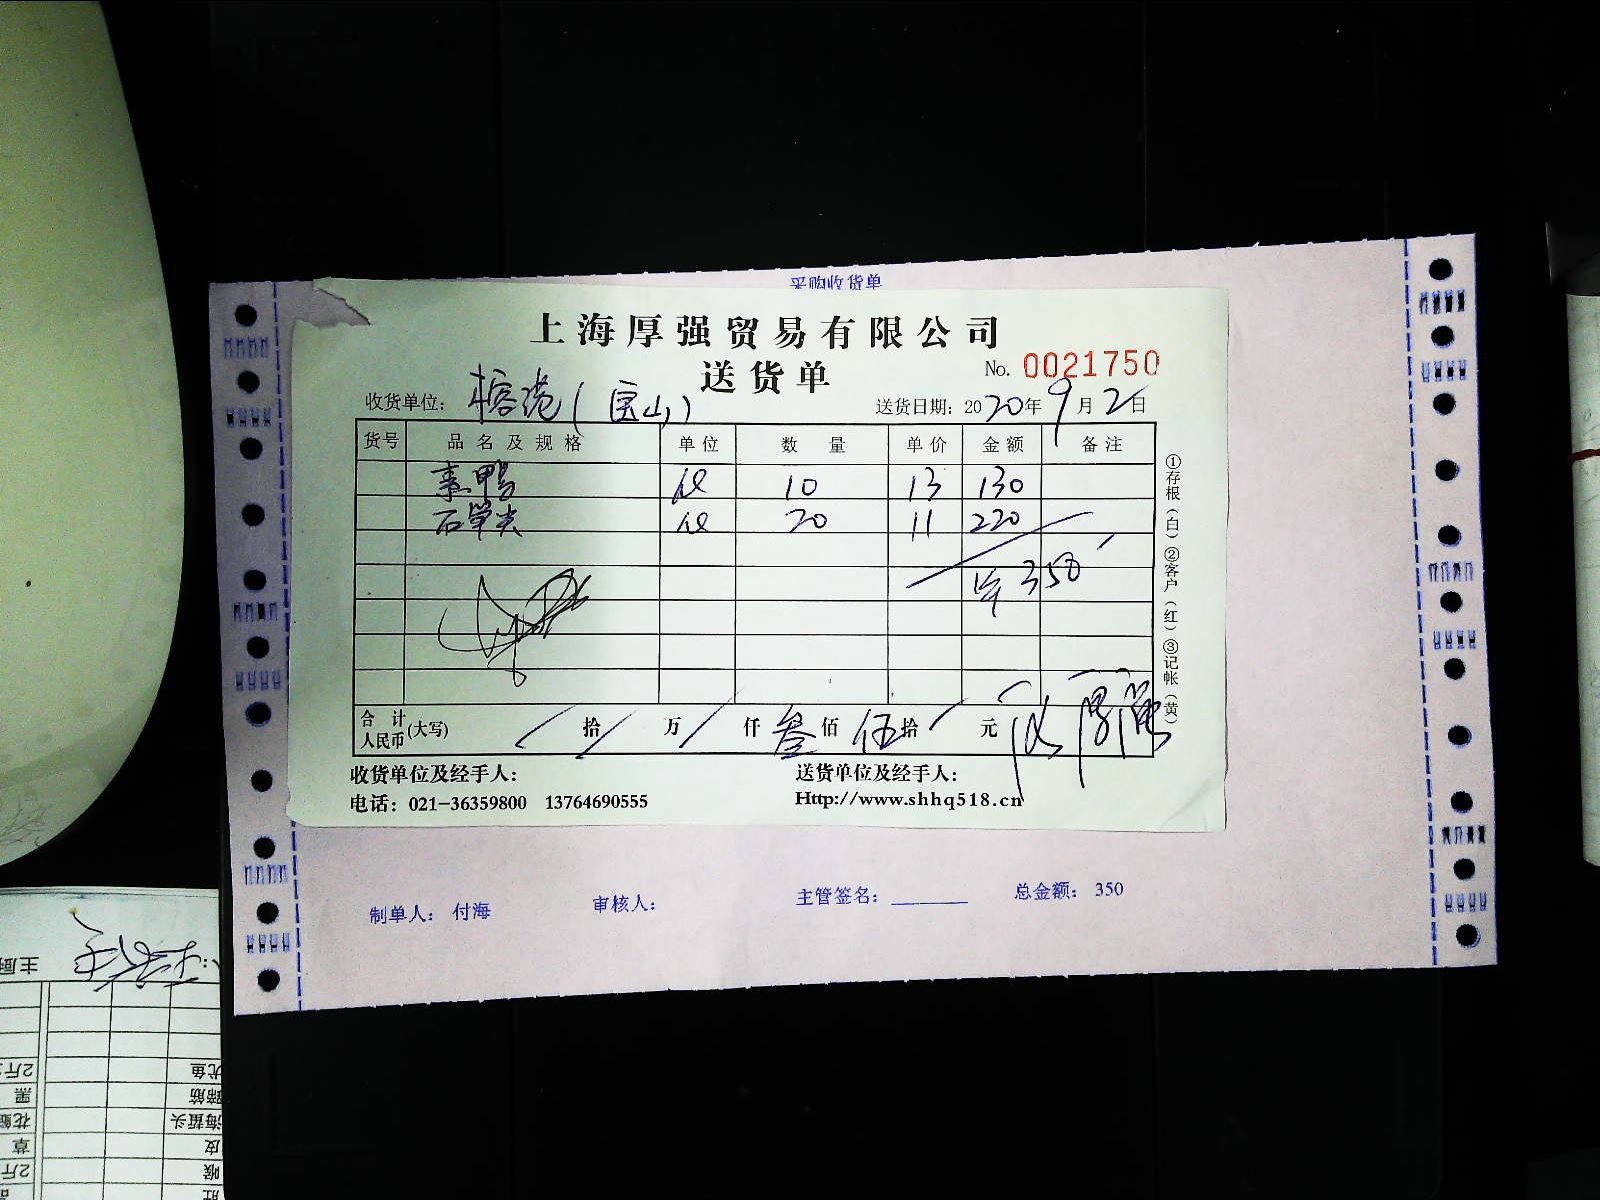 采购收货单
上海厚强贸易有限公司
送货单
No. 0021750
收货单位: 榕港(宝山)
送货日期: 2020年9月2日
货号 品名及规格 单位 数量 单价 金额 备注
素鸭 包 10 13 130
石笋尖 包 20 11 220
350
合计人民币(大写) 拾 万 仟 叁佰 伍拾 元
①存根(白)②客户(红)③记帐(黄)
收货单位及经手人:
送货单位及经手人:
电话: 021-36359800 13764690555
Http://www.shhq518.cn
制单人: 付海 审核人: 主管签名: 总金额: 350
主厨
尤鱼
2斤
蹄筋
黑
海蜇头
花鲢
皮
草
喉
2斤
肚